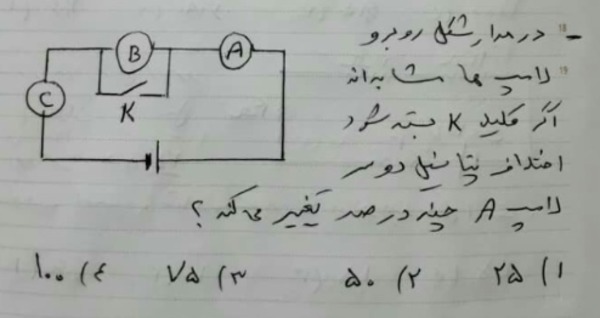 - در مدار شکل روبرو
لامپ ها مشابه اند
اگر کلید K بسته شود
اختلاف پتانسیل دوسر
لامپ A چند درصد تغییر می کند؟
۱) ۲۵ ۲) ۵۰ ۳) ۷۵ ۴) ۱۰۰
B
A
C
K